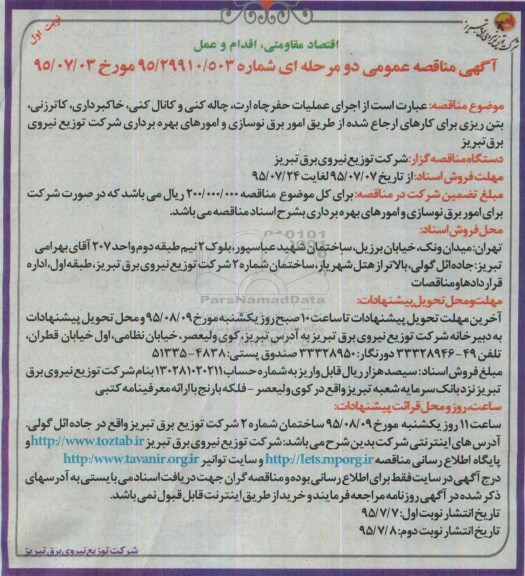 نوبت اول
شرکت توزیع نیروی برق تبریز
اقتصاد مقاومتی، اقدام و عمل
آگهی مناقصه عمومی دو مرحله ای شماره ۹۵/۲۹۹۱۰/۵۰۳ مورخ ۹۵/۰۷/۰۳
موضوع مناقصه: عبارت است از اجرای عملیات حفر چاه ارت، چاله کنی و کانال کنی، خاکبرداری، کاتر زنی،
بتن ریزی برای کارهای ارجاع شده از طریق امور برق نوسازی و امورهای بهره برداری شرکت توزیع نیروی
برق تبریز
دستگاه مناقصه گزار: شرکت توزیع نیروی برق تبریز
مهلت فروش اسناد: از تاریخ ۹۵/۰۷/۰۷ لغایت ۹۵/۰۷/۲۴
مبلغ تضمین شرکت در مناقصه: برای کل موضوع مناقصه ۲۰۰/۰۰۰/۰۰۰ ریال می باشد که در صورت شرکت
برای امور برق نوسازی و امورهای بهره برداری بشرح اسناد مناقصه می باشد.
محل فروش اسناد:
تهران: میدان ونک، خیابان برزیل، ساختمان شهید عباسپور، بلوک ۲ نیم طبقه دوم واحد ۲۰۷ آقای بهرامی
تبریز: جاده ائل گولی، بالاتر از هتل شهریار، ساختمان شماره ۲ شرکت توزیع نیروی برق تبریز، طبقه اول، اداره
قراردادها و مناقصات
ParsNamadData
مهلت و محل تحویل پیشنهادات:
آخرین مهلت تحویل پیشنهادات تا ساعت ۱۰ صبح روز یکشنبه مورخ ۹۵/۰۸/۰۹ و محل تحویل پیشنهادات
به دبیرخانه شرکت توزیع نیروی برق تبریز به آدرس تبریز، کوی ولیعصر، خیابان نظامی، اول خیابان قطران،
تلفن ۴۹-۳۳۳۲۸۹۴۶ دورنگار: ۳۳۳۲۸۹۵۰ صندوق پستی: ۴۸۳۸-۵۱۳۳۵
مبلغ فروش اسناد: سیصد هزار ریال قابل واریز به شماره حساب ۱۳۰۲۸۱۰۲۰۲۱۱ بنام شرکت توزیع نیروی برق
تبریز نزد بانک سرمایه شعبه تبریز واقع در کوی ولیعصر - فلکه بارنج با ارائه معرفینامه کتبی
ساعت، روز و محل قرائت پیشنهادات:
ساعت ۱۱ روز یکشنبه مورخ ۹۵/۰۸/۰۹ ساختمان شماره ۲ شرکت توزیع برق تبریز واقع در جاده ائل گولی.
آدرس های اینترنتی شرکت بدین شرح می باشد: شرکت توزیع نیروی برق تبریز http://www.toztab.ir و
پایگاه اطلاع رسانی مناقصه http://lets.mporg.ir و سایت توانیر http://www.tavanir.org.ir
درج آگهی در سایت فقط برای اطلاع رسانی بوده و مناقصه گران جهت دریافت اسناد می بایستی به آدرسهای
ذکر شده در آگهی روزنامه مراجعه فرمایند و خرید از طریق اینترنت قابل قبول نمی باشد.
تاریخ انتشار نوبت اول: ۹۵/۷/۷
تاریخ انتشار نوبت دوم: ۹۵/۷/۸
شرکت توزیع نیروی برق تبریز